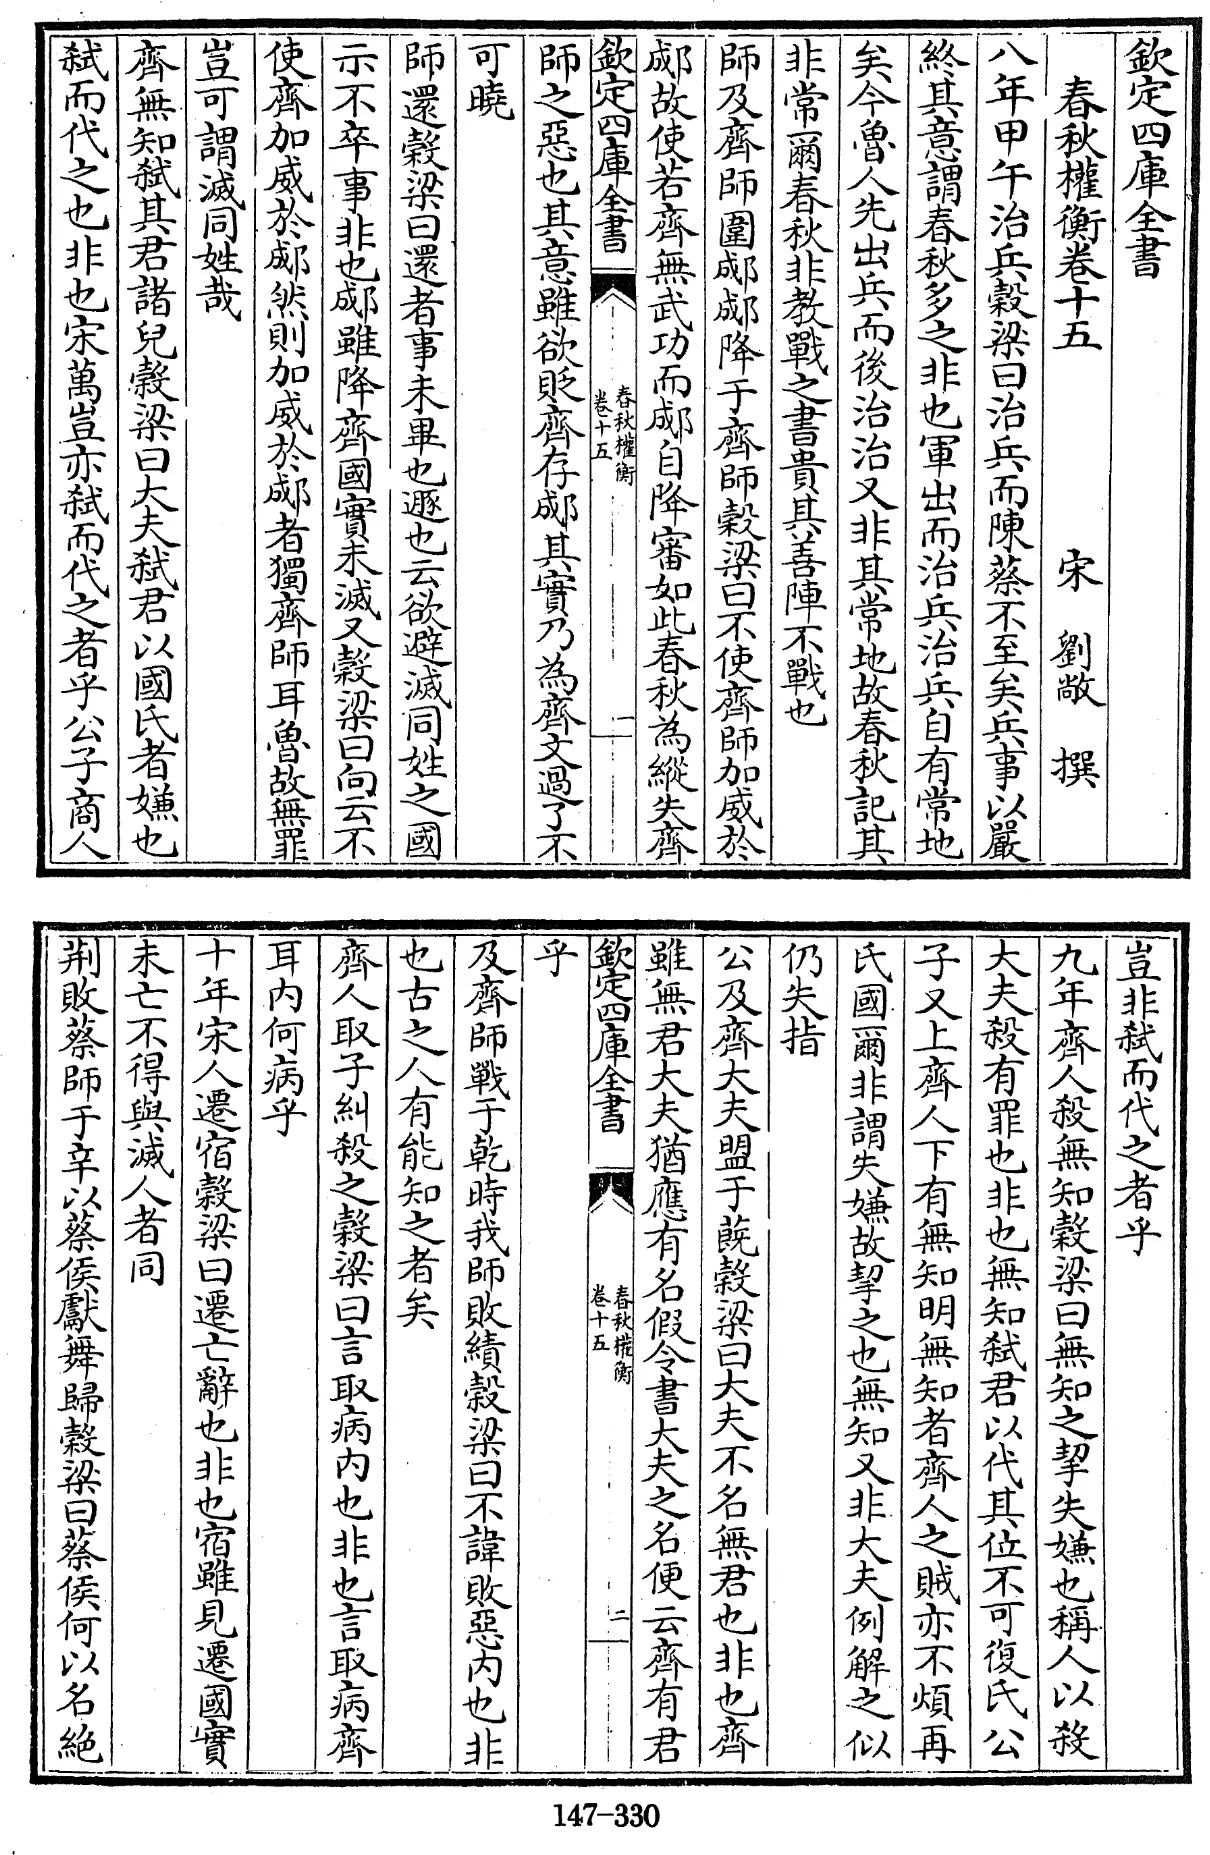 欽定四庫全書
春秋權衡卷十五
宋 劉敞 撰
八年甲午治兵穀梁曰治兵而陳蔡不至矣兵事以嚴
終其意謂春秋多之非也軍出而治兵治兵自有常地
矣今魯人先出兵而後治治又非其常地故春秋記其
非常爾春秋非教戰之書貴其善陣不戰也
師及齊師圍郕郕降于齊師穀梁曰不使齊師加威於
郕故使若齊無武功而郕自降審如此春秋為縱失齊
欽定四庫全書
春秋權衡
卷十五
一
師之惡也其意雖欲貶齊存郕其實乃為齊文過了不
可曉
師還穀梁曰還者事未畢也遯也云欲避滅同姓之國
示不卒事非也郕雖降齊國實未滅又穀梁曰向云不
使齊加威於郕然則加威於郕者獨齊師耳魯故無罪
豈可謂滅同姓哉
齊無知弑其君諸兒穀梁曰大夫弑君以國氏者嫌也
弑而代之也非也宋萬豈亦弑而代之者乎公子商人
豈非弑而代之者乎
九年齊人殺無知穀梁曰無知之挈失嫌也稱人以殺
大夫殺有罪也非也無知弑君以代其位不可復氏公
子又上齊人下有無知明無知者齊人之賊亦不煩再
氏國爾非謂失嫌故挈之也無知又非大夫例解之似
仍失指
公及齊大夫盟于蔇穀梁曰大夫不名無君也非也齊
雖無君大夫猶應有名假令書大夫之名便云齊有君
欽定四庫全書
春秋權衡
卷十五
二
乎
及齊師戰于乾時我師敗績穀梁曰不諱敗惡内也非
也古之人有能知之者矣
齊人取子糾殺之穀梁曰言取病内也非也言取病齊
耳内何病乎
十年宋人遷宿穀梁曰遷亡辭也非也宿雖見遷國實
未亡不得與滅人者同
荆敗蔡師于莘以蔡侯獻舞歸穀梁曰蔡侯何以名絶
147-330